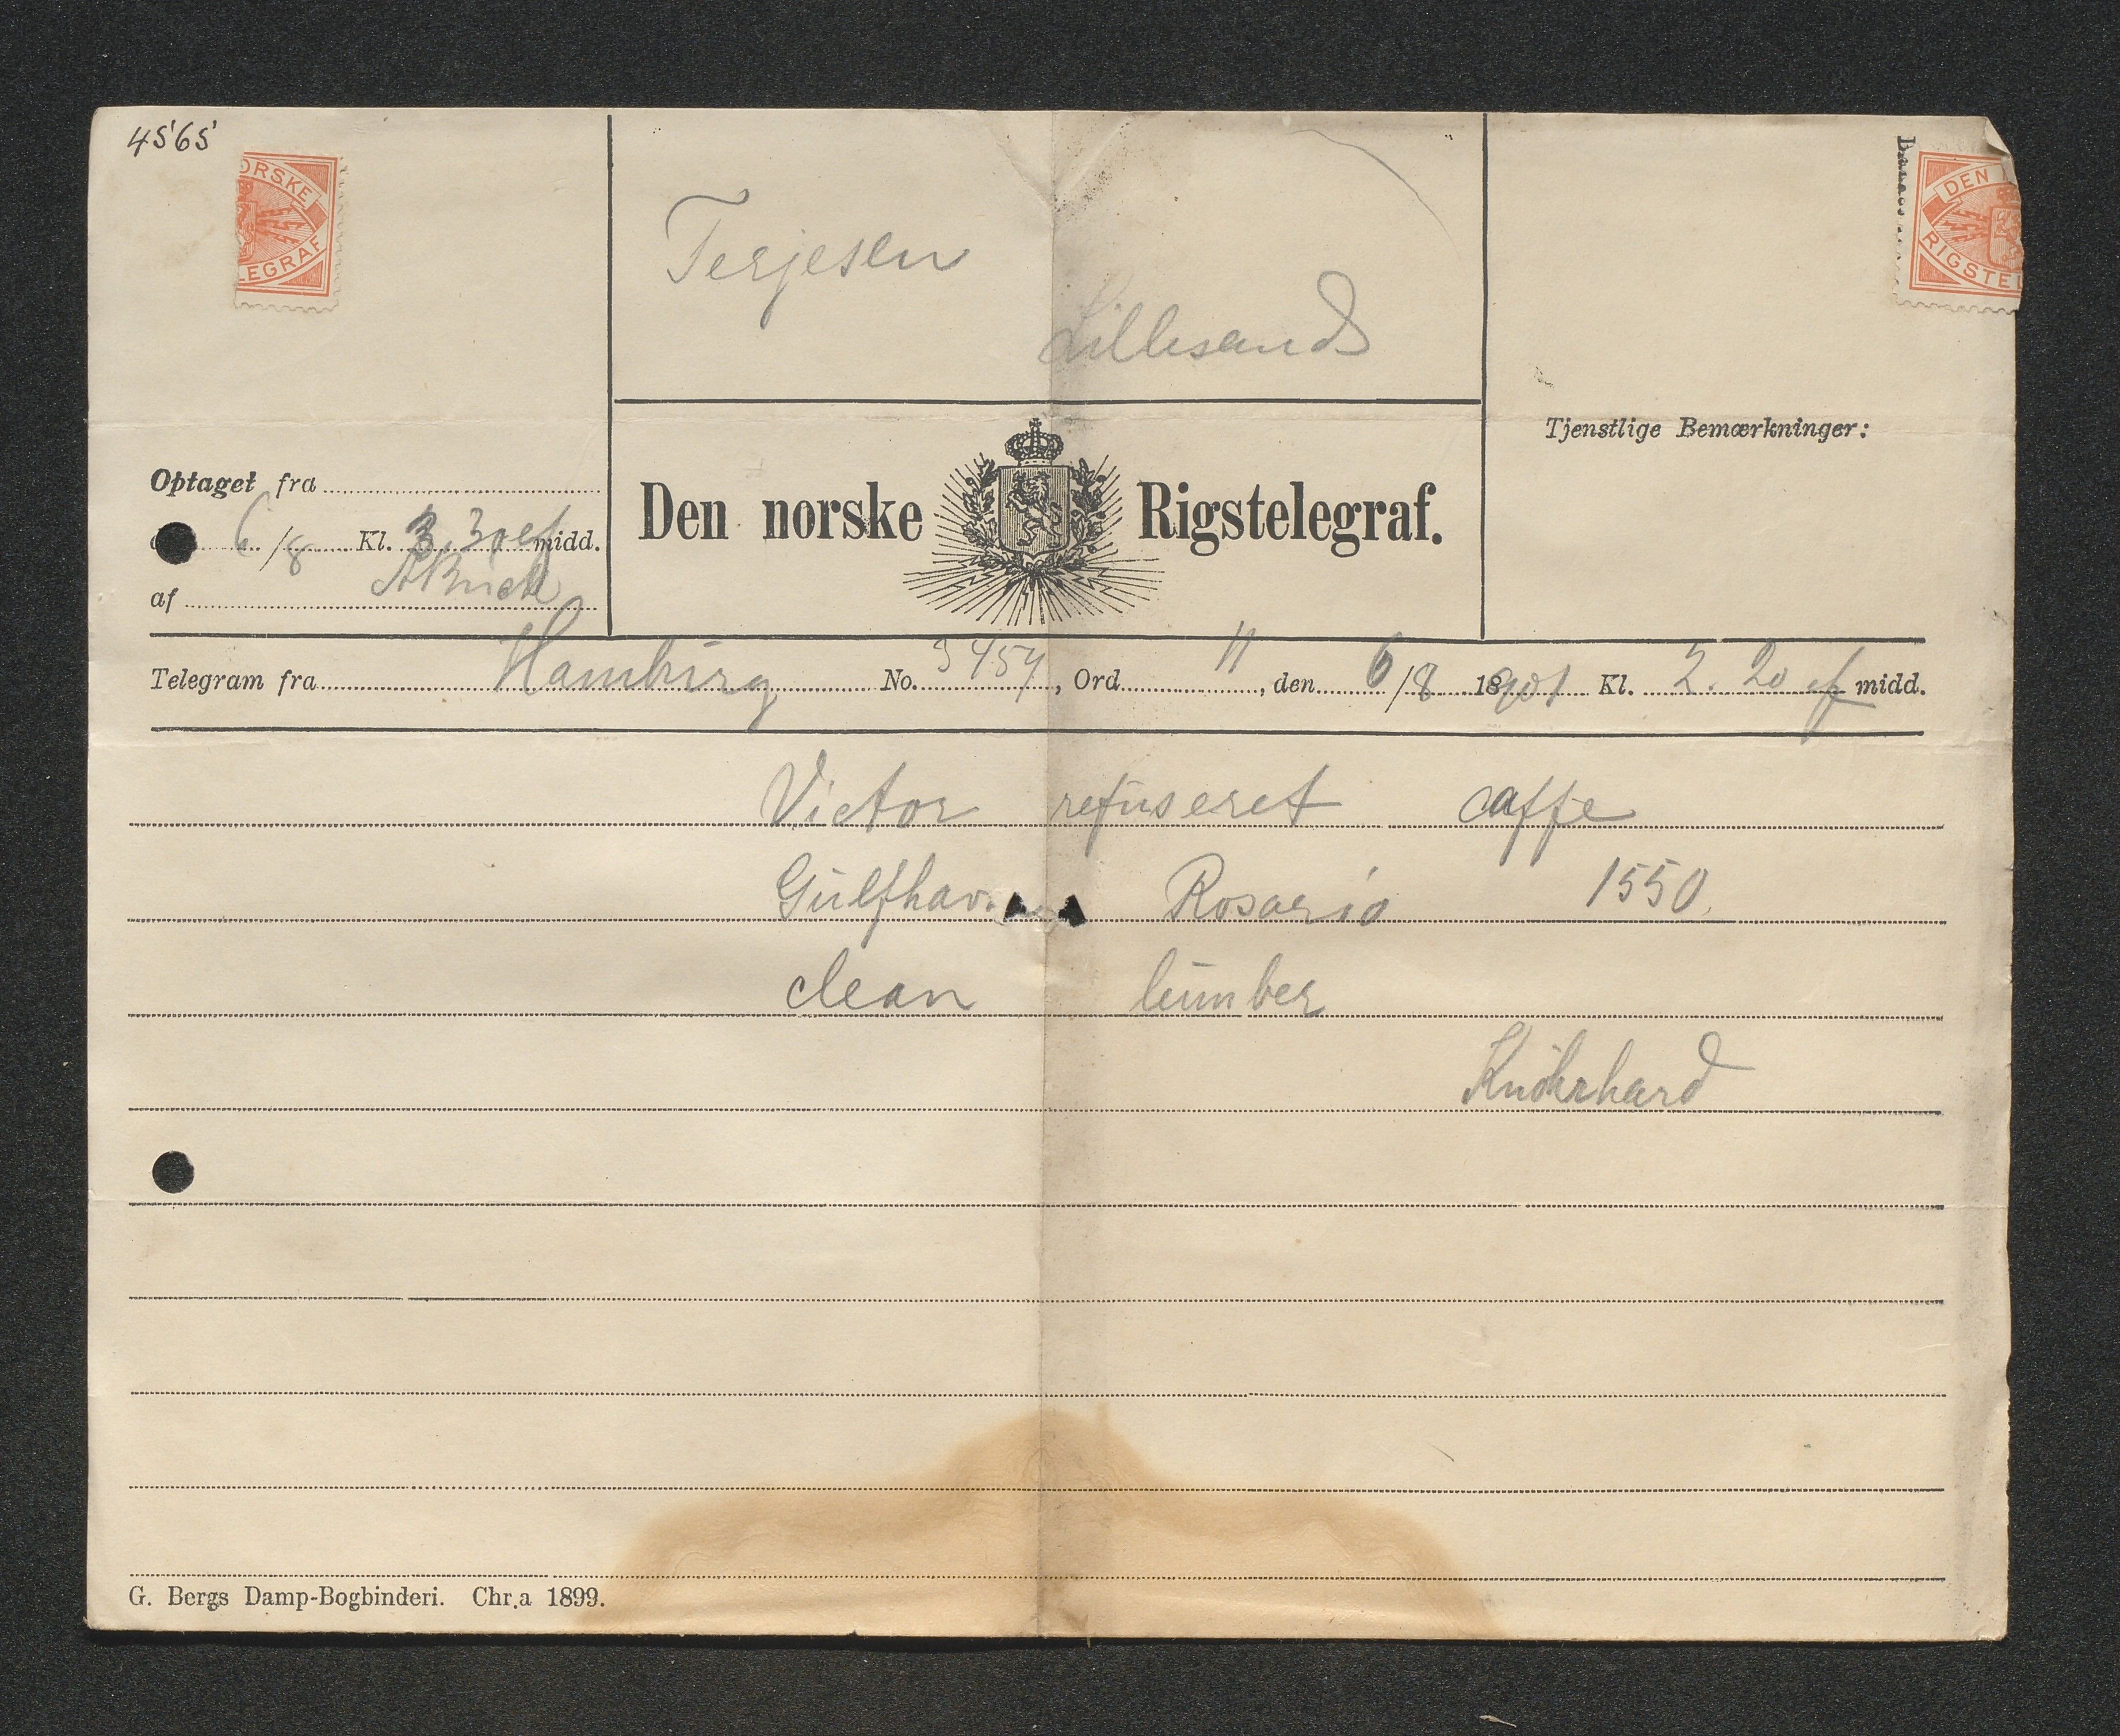 4565
ORSKE
LEGRAF
DEN
RIGSTEL
Terjesen
Lillesand
Tjenstlige Bemærkninger:
Optaget fra
6/8 Kl. 3.30 ef midd.
af
Den norske Rigstelegraf.
Telegram fra Hamburg No. 3454, Ord 11, den 6/8 18901 Kl. 2.20 ef midd.
Victor refuseret caffe
Rosario 1550
clean lumber
Knöhrhard
G. Bergs Damp-Bogbinderi. Chr.a 1899.